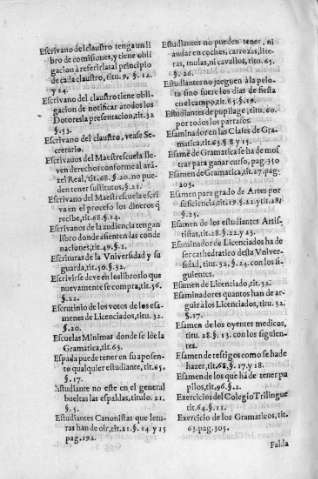 Escrivano del claustro tenga un li
bro de comisiones, y tiene obli
gacion a referirlas al principio
de cada claustro, titu. 9, §. 12.
y 14.
Escrivano del claustro tiene obli
gacion de notificar a todos los
Dotores la presentacion, tit. 32
§. 52.
Escrivano del claustro, vease Se-
cretario.
Escrivanos del Maestrescuela lle-
ven derechos conforme al ará-
zel Real, tit. 68 §. 20. no pue-
den tener sustitutos, §. 21.
Escrivano del Maestrescuela escri
va en el processo los dineros q̃
recibe, tit. 68. §. 14.
Escrivanos de la audiencia tengan
libro donde asienten las conde
naciones, tit. 49. §. 2.
Escrituras de la Universidad y su
guarda, tit. 50. §. 32.
Escrivirse deve en los libros lo que
nuevamente se compra, tit. 56.
§. 22.
Escrutinio de los votos de los esa-
menes de Licenciados, titu. 32.
§. 20.
Escuelas Minimas donde se lée la
Gramatica, tit. 63.
Espada puede tener en su aposen-
to qualquier estudiante, tit. 65.
§. 17.
Estudiante no este en el general
bueltas las espaldas, titulo. 21.
§. 5.
Estudiantes Canonistas que letu-
ras han de oir, tit. 21. §. 14. y 15
pag. 192.
Estudiantes no pueden tener, ni
andar en coches, carrozas, lite-
ras, mulas, ni cavallos, titu. 65.
§. 26.
Estudiantes no jueguen à la pelo
ta sino fuere los dias de fiesta
en el campo, tit. 65. §. 19.
Estudiantes de pupilage, titu. 60.
por todos los parrafos.
Esaminador en las Clases de Gra-
matica, tit. 63 §. 8 y 15.
Esamē de Gramatica se ha de mos
trar para ganar curso, pag. 350
Esamen de Gramatica, tit. 27. pag.
203.
Esamen para grado de Artes por
suficiencia, tit. 19. §. 21. y tit. 28
§. 25.
Esamen de los estudiantes Artis-
tas, tit. 28. §. 22. y 23.
Esaminador de Licenciados ha de
ser cathedratico desta Univer-
sidad, titu. 32. §. 24. con los si-
guientes.
Esamen de Licenciado, tit. 32.
Esaminadores quantos han de ar-
guir a los Licenciados, titu. 32.
§. 17.
Esamen de los oyentes medicos,
titu. 28. §. 13. con los siguien-
tes.
Esamen de testigos como se ha de
hazer, tit. 68. §. 17. y 18.
Esamen de los que há de tener pu
pilos, tit. 96. §. 2.
Exercicios del Colegio Trilingue
tit. 64. §. 11.
Exercicio de los Gramaticos, tit.
63. pag. 305.
Falda